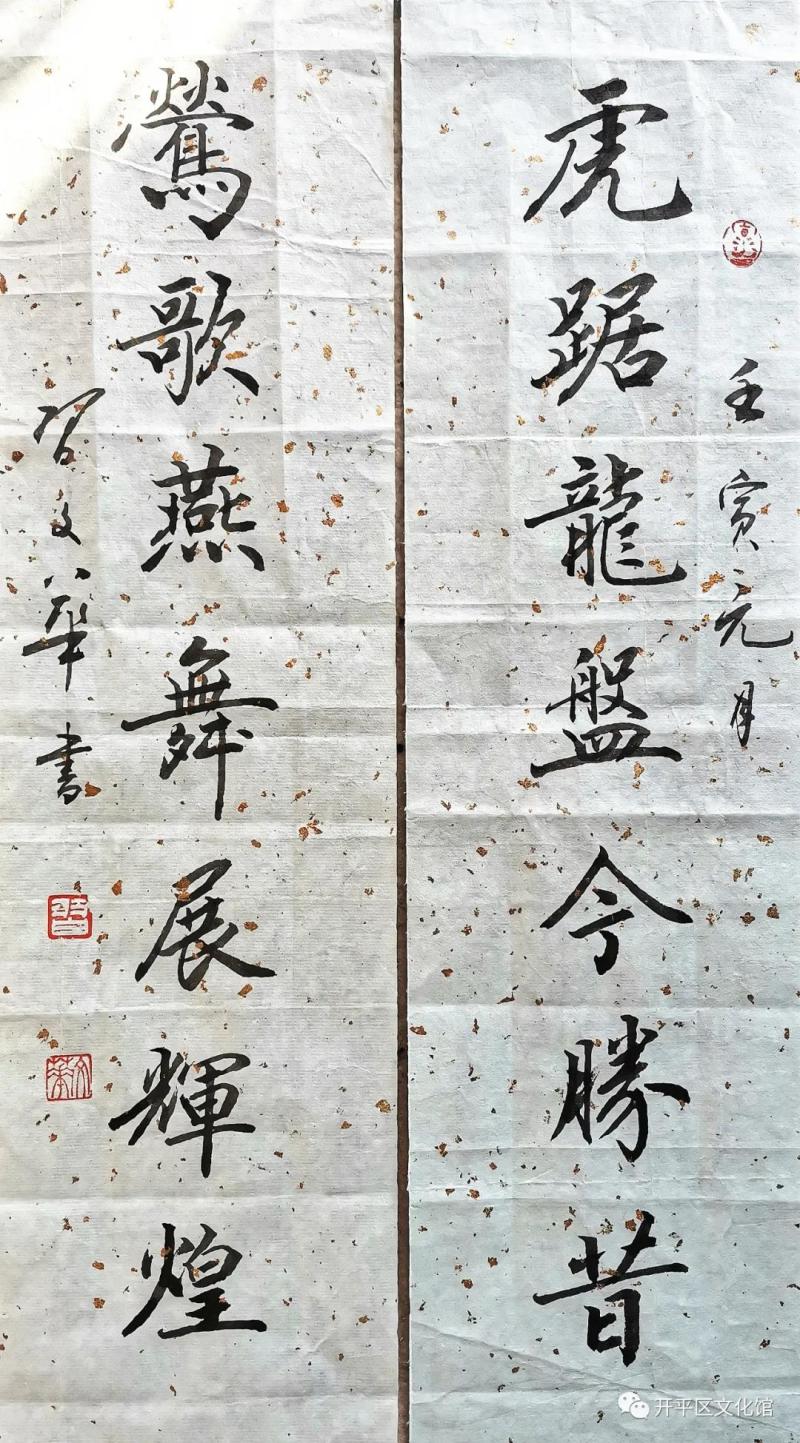 壬寅元月
虎踞龍盤今勝昔
鶯歌燕舞展輝煌
文華書
文華
开平区文化馆